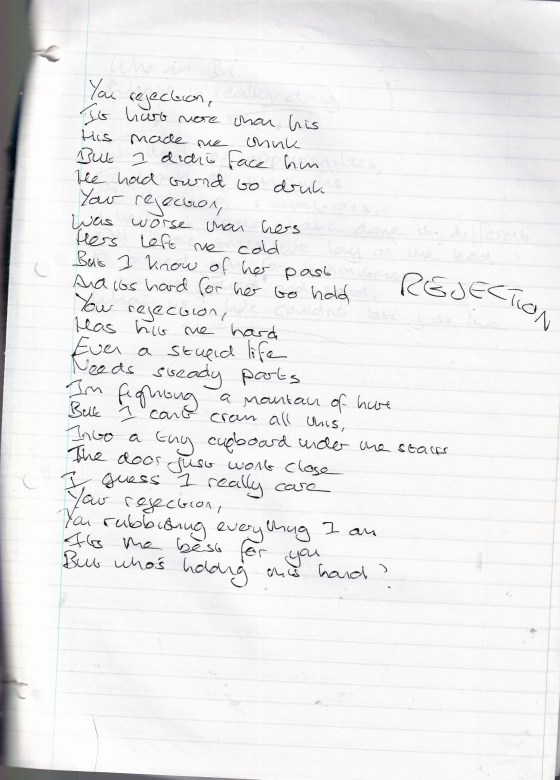 You rejection,
Its hurts more than his
His made me think
But I didnt face him
He had turnd to drink
Your rejection,
Was worse than hers
Hers left me cold
But I know of her past
And its hard for her to hold
REJECTION
Your rejection,
Has hit me hard
Even a stupid life
Needs steady parts
Im fighting a mantain of hurt
But I cant cram all this,
Into a tiny cupboard under the stairs
The door just wont close
I guess I really care
Your rejection,
You rubbishing everything I am
Its the best for you
But who's holding this hand?